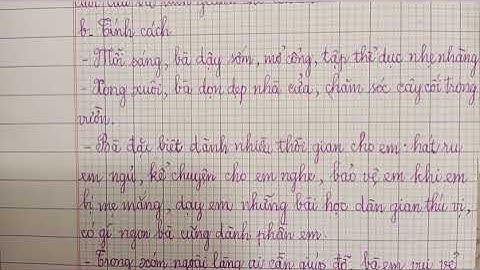 b. Tính cách
- Mỗi sáng, bà dậy sớm, mở cổng, tập thể dục nhẹ nhàng
- Xong xuôi, bà dọn dẹp nhà cửa, chăm sóc cây cối trong
vườn.
- Bà đặc biệt dành nhiều thời gian cho em: hát ru
em ngủ, kể chuyện cho em nghe, bảo vệ em khi em
bị mẹ mắng, dạy em những bài học dân gian thú vị,
có gì ngon bà cũng dành phần em.
- Trong xóm ngoài làng ai cần giúp đỡ bà em vui vẻ